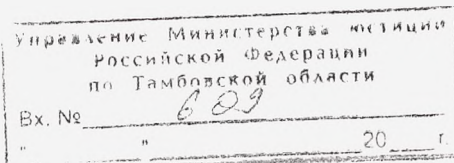 Управление Министерства юстиции
Российской Федерации
по Тамбовской области
Вх. № 609
" " 20 г.